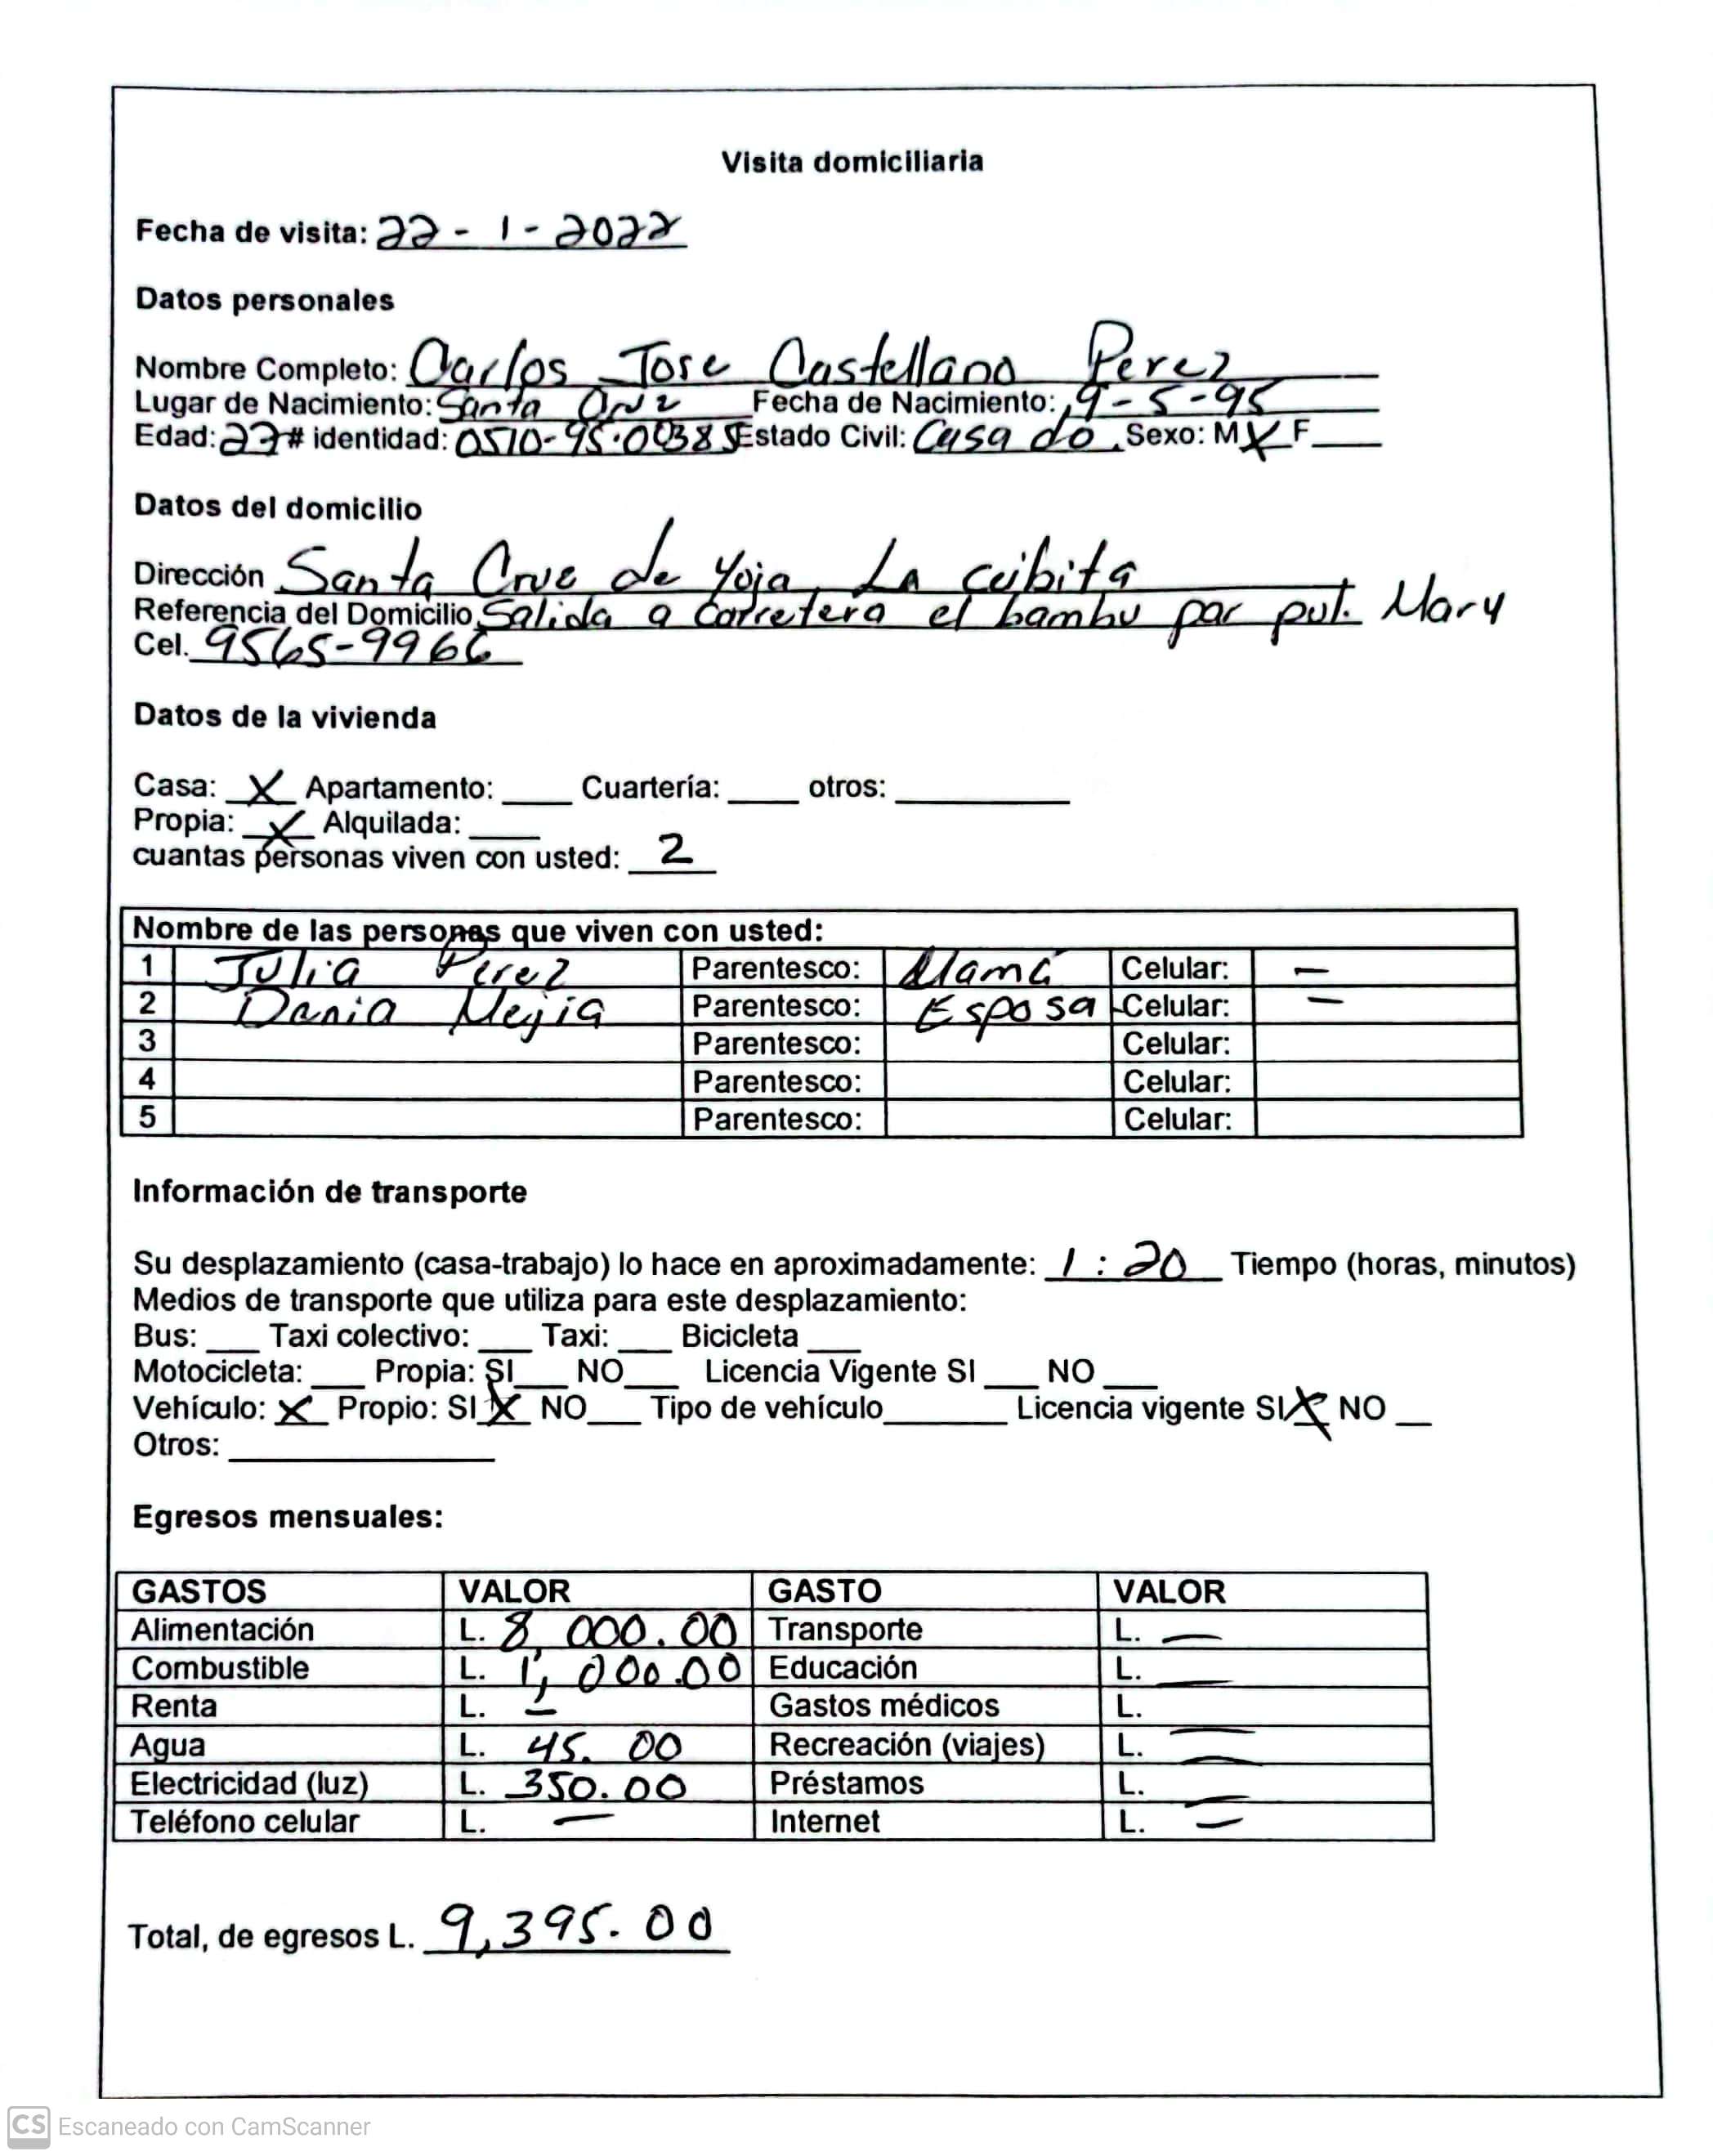 Visita domiciliaria
Fecha de visita: 22 - 1 - 2022
Datos personales
Nombre Completo: Carlos Jose Castellano Perez
Lugar de Nacimiento: Santa Cruz Fecha de Nacimiento: 19-5-95
Edad: 27 # identidad: 0510-95-00385 Estado Civil: Casado. Sexo: M X F____
Datos del domicilio
Dirección Santa Cruz de Yoja, La ceibita
Referencia del Domicilio Salida a carretera el bambu par pul. Mary
Cel. 9565-9966
Datos de la vivienda
Casa: X Apartamento: ____ Cuartería: ____ otros: __________
Propia: X Alquilada: ____
cuantas personas viven con usted: 2
Nombre de las personas que viven con usted:
1 Julia Perez Parentesco: Mamá Celular: –
2 Dania Mejia Parentesco: Esposa Celular: –
3 Parentesco: Celular:
4 Parentesco: Celular:
5 Parentesco: Celular:
Información de transporte
Su desplazamiento (casa-trabajo) lo hace en aproximadamente: 1 : 20 Tiempo (horas, minutos)
Medios de transporte que utiliza para este desplazamiento:
Bus: ___ Taxi colectivo: ___ Taxi: ___ Bicicleta ___
Motocicleta: ___ Propia: SI___ NO___ Licencia Vigente SI ___ NO ___
Vehículo: X Propio: SI X NO___ Tipo de vehículo_______ Licencia vigente SI X NO __
Otros: _______________
Egresos mensuales:
GASTOS VALOR GASTO VALOR
Alimentación L. 8,000.00 Transporte L. —
Combustible L. 1,000.00 Educación L. —
Renta L. – Gastos médicos L. —
Agua L. 45.00 Recreación (viajes) L. —
Electricidad (luz) L. 350.00 Préstamos L. —
Teléfono celular L. — Internet L. —
Total, de egresos L. 9,395.00
CS Escaneado con CamScanner